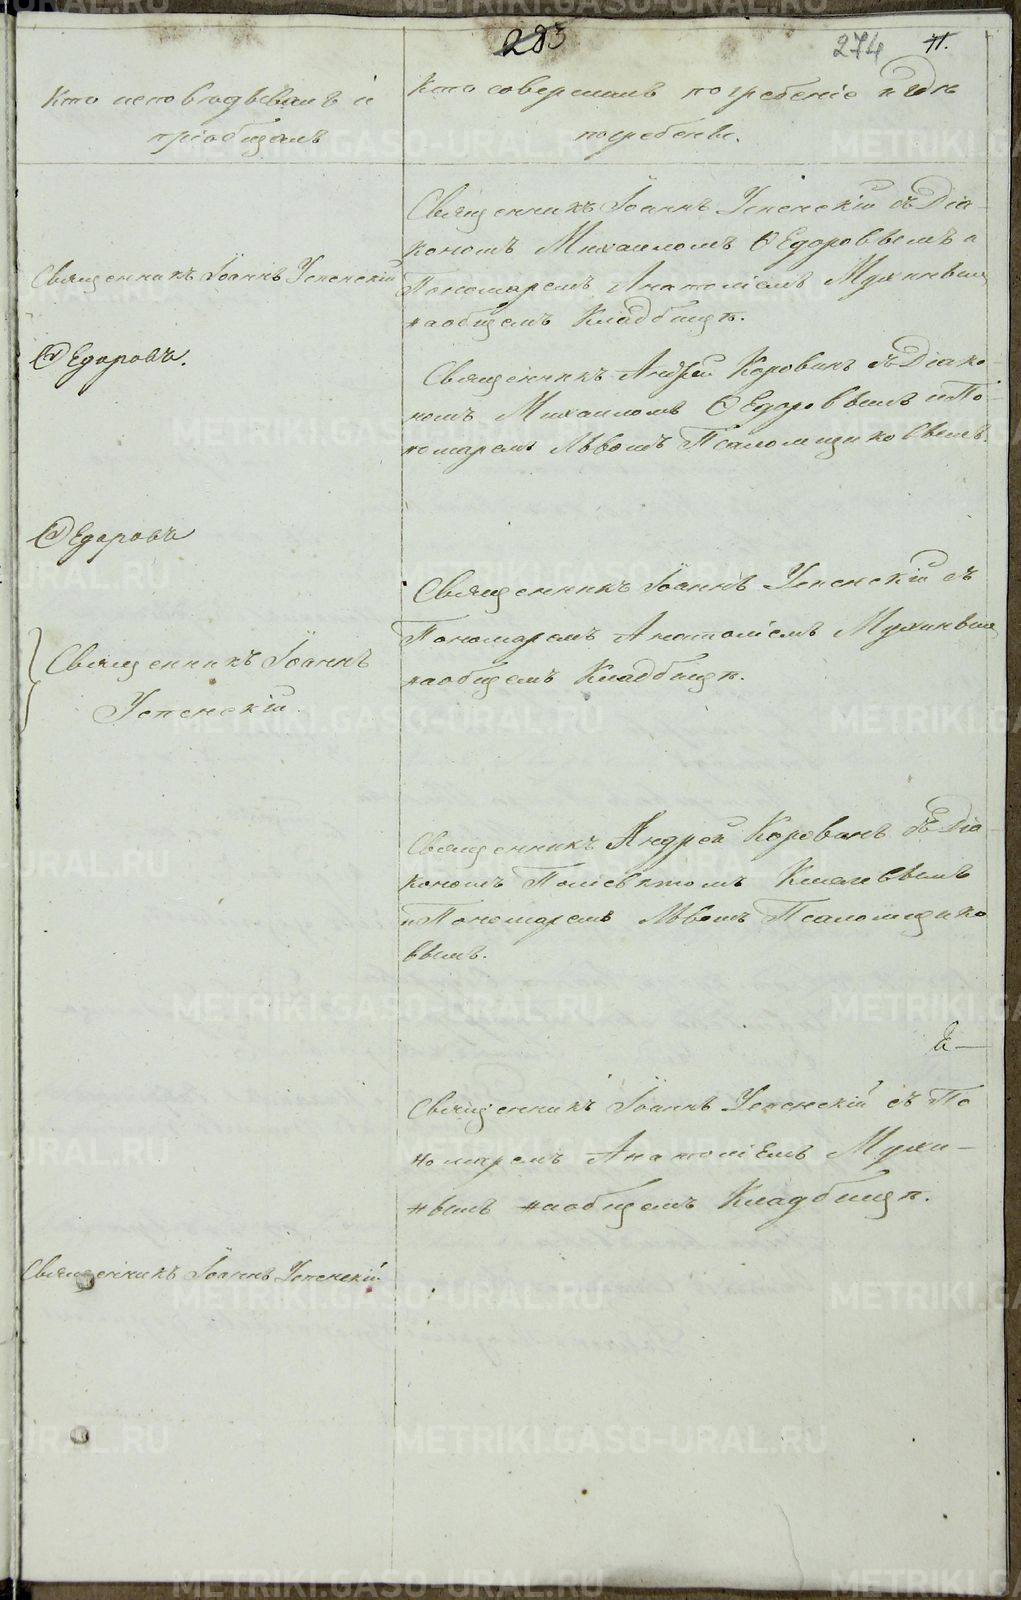 283
274
11.
Кто исповѣдывалъ и
пріобщалъ
Кто совершалъ погребеніе и гдѣ
погребены.
Священникъ Іоаннъ Успенскій съ Діа-
кономъ Михаиломъ Ѳедоровымъ и
Пономаремъ Анатоліемъ Мухинымъ
на общемъ Кладбищѣ.
Священникъ Іоаннъ Успенскій
Ѳедоровъ.
Священникъ Андрей Коровинъ съ Діако-
номъ Михаиломъ Ѳедоровымъ и По-
номаремъ Львомъ Псаломщиковымъ.
Ѳедоровъ
Священникъ Іоаннъ Успенскій съ
Пономаремъ Анатоліемъ Мухинымъ
на общемъ Кладбищѣ.
Священникъ Іоаннъ
Успенскій.
Священникъ Андрей Коровинъ съ Діа-
кономъ
и Пономаремъ Львомъ Псаломщико
вымъ.
Священникъ Іоаннъ Успенскій съ По
номаремъ Анатоліемъ Мухи-
нымъ на общемъ Кладбищѣ.
Священникъ Іоаннъ Успенскій.
METRIKI.GASO-URAL.RU